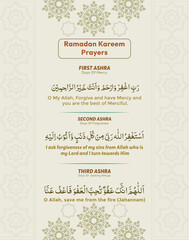 Ramadan Kareem
Prayers
FIRST ASHRA
Days Of Mercy
رَبِّ اغْفِرْ وَارْحَمْ وَأَنْتَ خَيْرُ الرَّاحِمِيْنَ
O My Allah, Forgive and have Mercy and
you are the best of Merciful.
SECOND ASHRA
Days Of Forgiveness
اَسْتَغْفِرُ اللهَ رَبِّىْ مِنْ كُلِّ ذَنْبٍ وَّاَتُوْبُ اِلَيْهِ
I ask forgiveness of my sins from Allah who is
my Lord and I turn towards Him
THIRD ASHRA
اَللّٰهُمَّ اِنَّكَ عَفُوٌّ تُحِبُّ الْعَفْوَ فَاعْفُ عَنَّا
O Allah, save me from the fire (Jahannam)